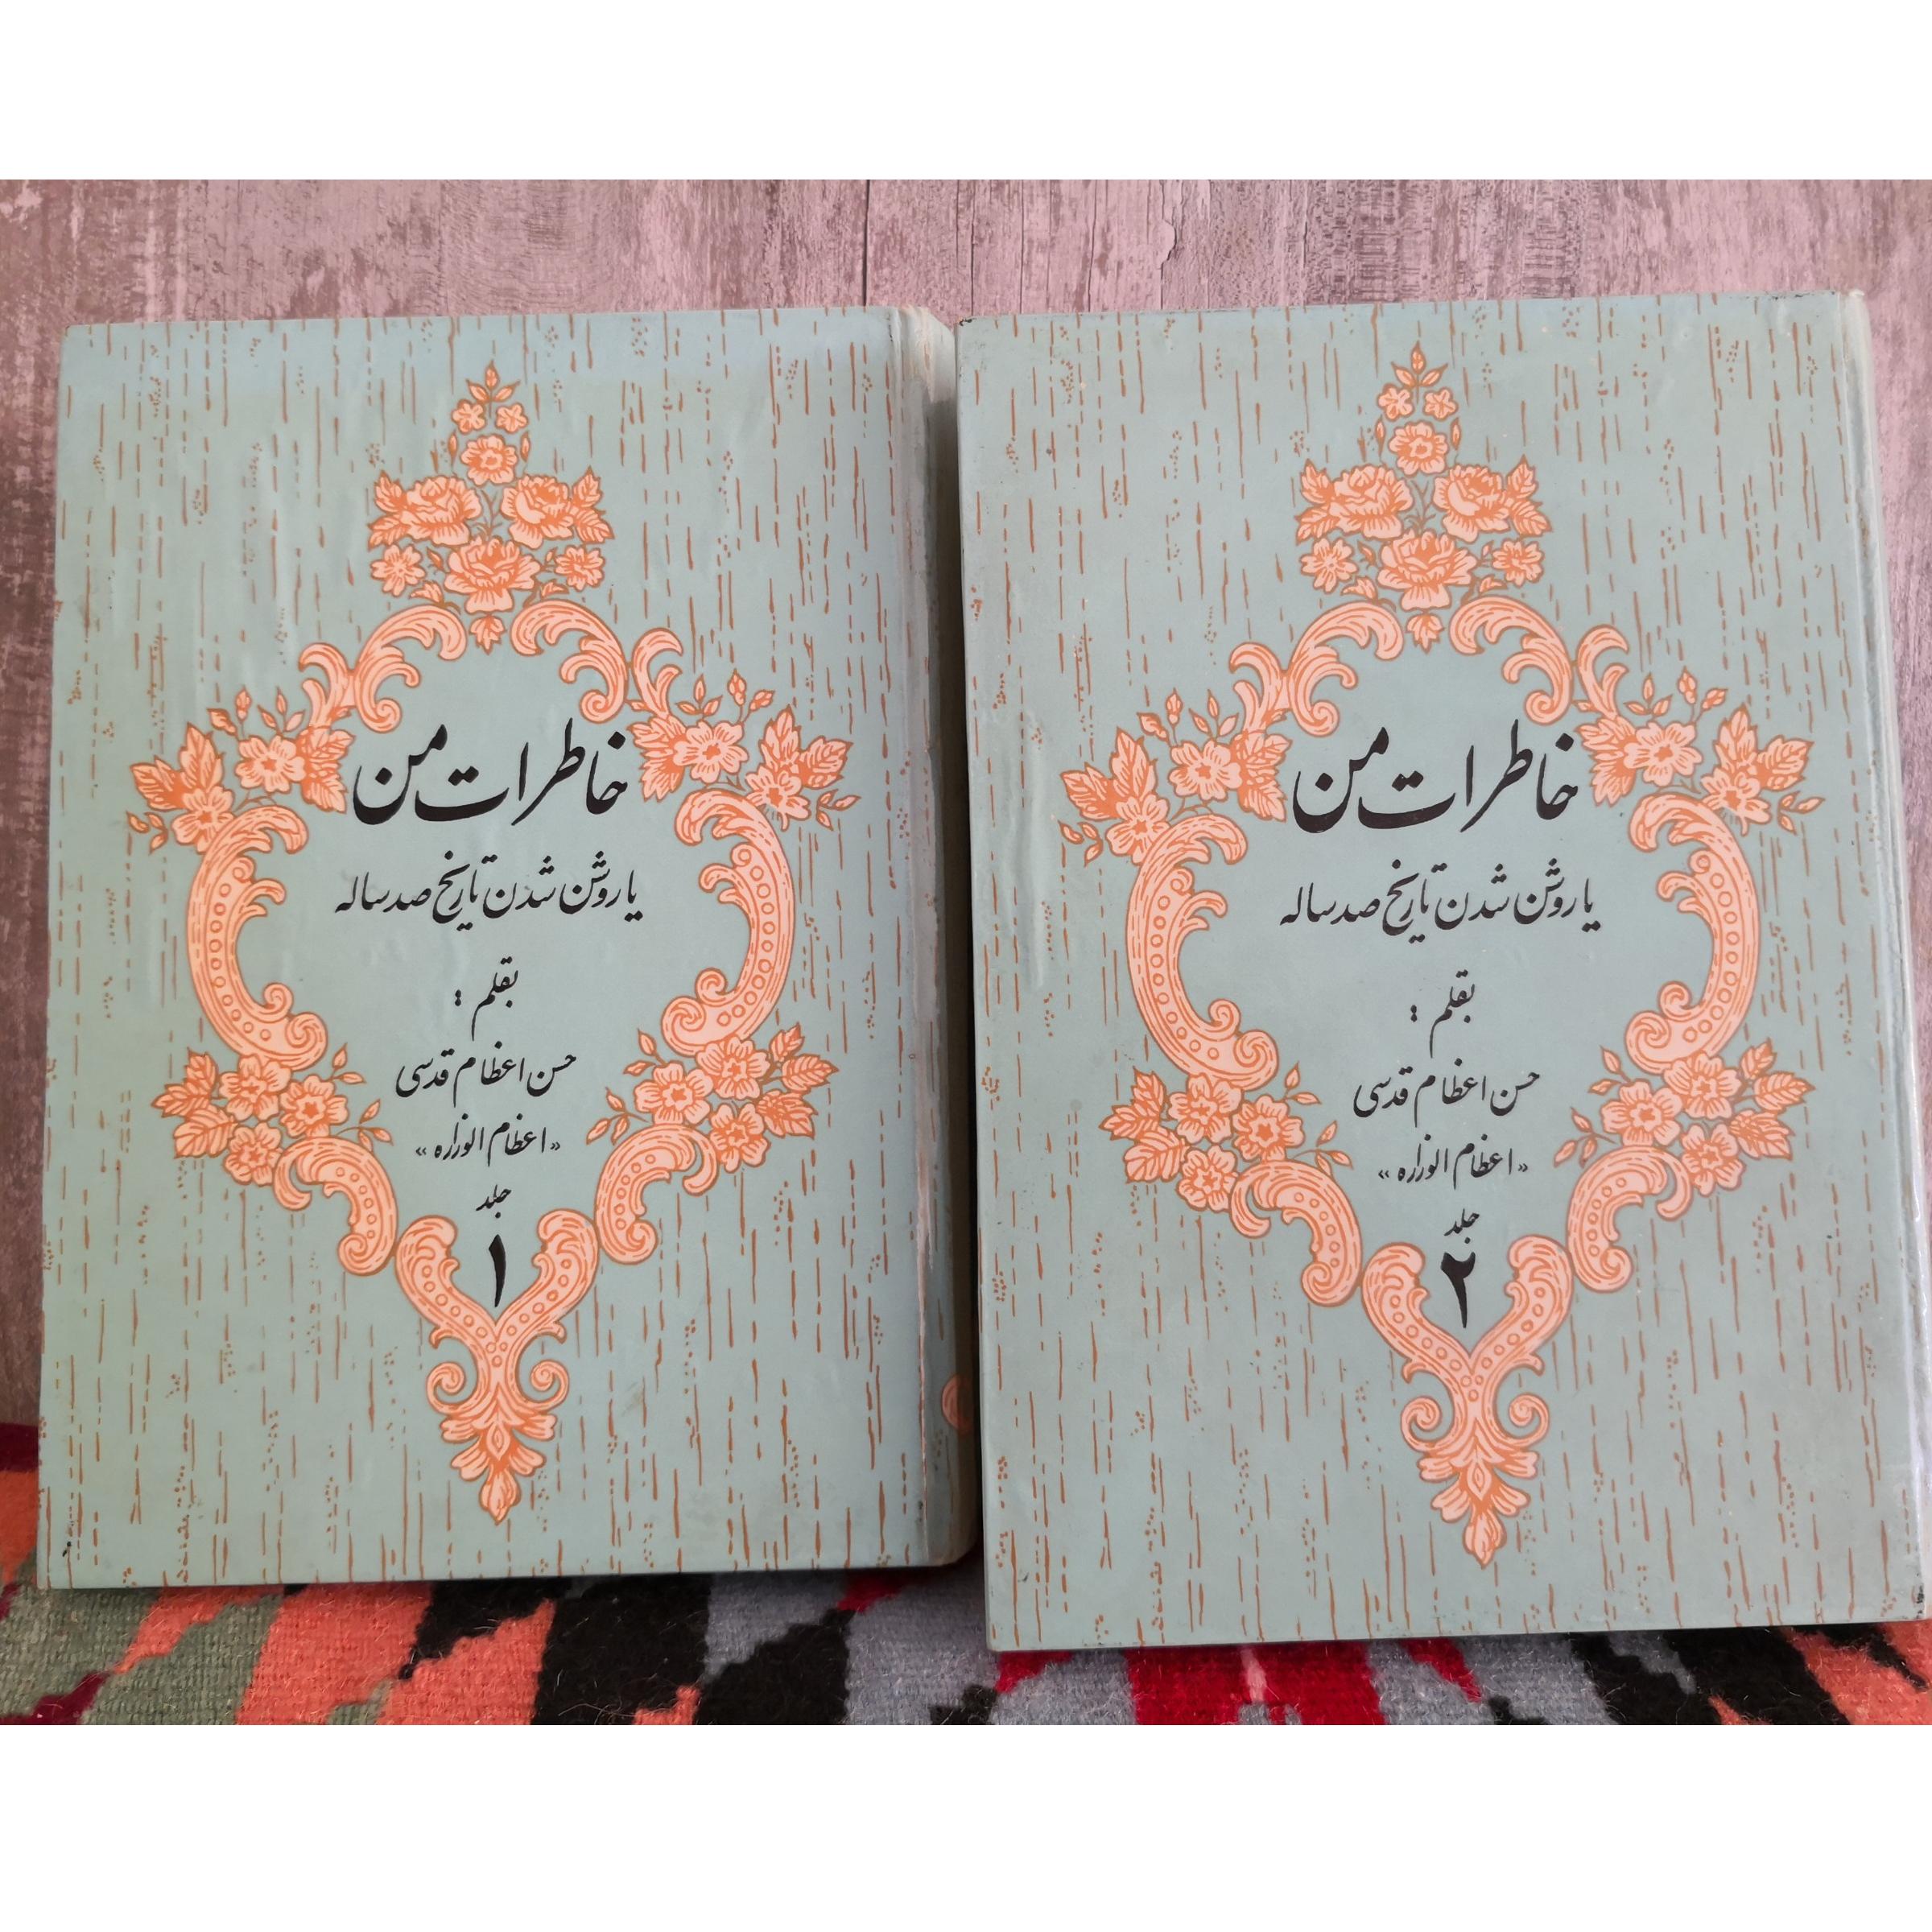 خاطرات من
یا روشن شدن تاریخ صد ساله
بقلم :
حسن اعظام قدسی
«اعظام الوزاره»
جلد
۱
خاطرات من
یا روشن شدن تاریخ صد ساله
بقلم :
حسن اعظام قدسی
«اعظام الوزاره»
جلد
۲